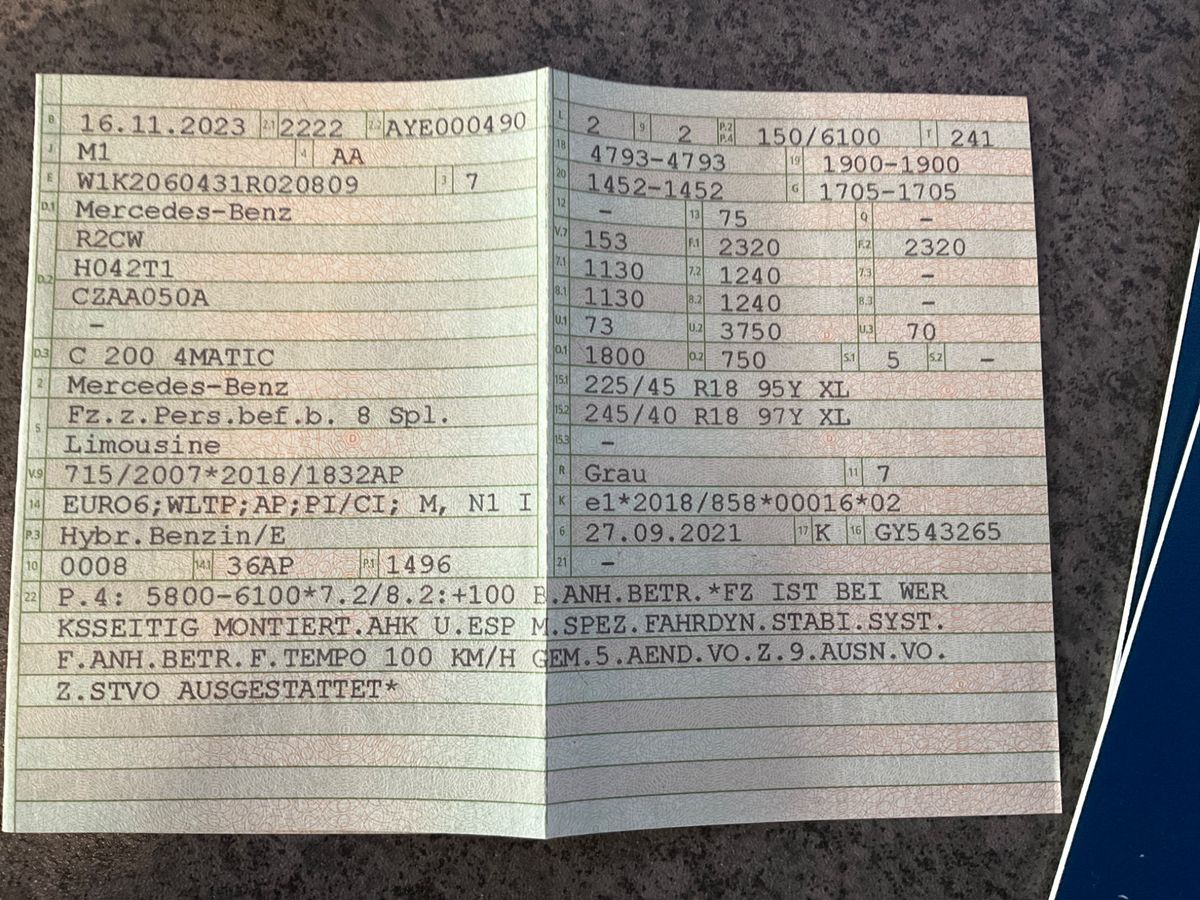 B 16.11.2023 2.1 2222 2.2 AYE000490
J M1 4 AA
E W1K2060431R020809 3 7
D.1 Mercedes-Benz
R2CW
D.2 H042T1
CZAA050A
–
D.3 C 200 4MATIC
2 Mercedes-Benz
5 Fz.z.Pers.bef.b. 8 Spl.
Limousine
V.9 715/2007*2018/1832AP
14 EURO6;WLTP;AP;PI/CI; M, N1 I
P.3 Hybr.Benzin/E
10 0008 14.1 36AP P.1 1496
L 2 9 2 P.2 P.4 150/6100 T 241
18 4793-4793 19 1900-1900
20 1452-1452 G 1705-1705
12 – 13 75 Q –
V.7 153 F.1 2320 F.2 2320
7.1 1130 7.2 1240 7.3 –
8.1 1130 8.2 1240 8.3 –
U.1 73 U.2 3750 U.3 70
O.1 1800 O.2 750 S.1 5 S.2 –
15.1 225/45 R18 95Y XL
15.2 245/40 R18 97Y XL
15.3 –
R Grau 11 7
K e1*2018/858*00016*02
6 27.09.2021 17 K 16 GY543265
21 –
22 P.4: 5800-6100*7.2/8.2:+100 B.ANH.BETR.*FZ IST BEI WER
KSSEITIG MONTIERT.AHK U.ESP M.SPEZ.FAHRDYN.STABI.SYST.
F.ANH.BETR.F.TEMPO 100 KM/H GEM.5.AEND.VO.Z.9.AUSN.VO.
Z.STVO AUSGESTATTET*